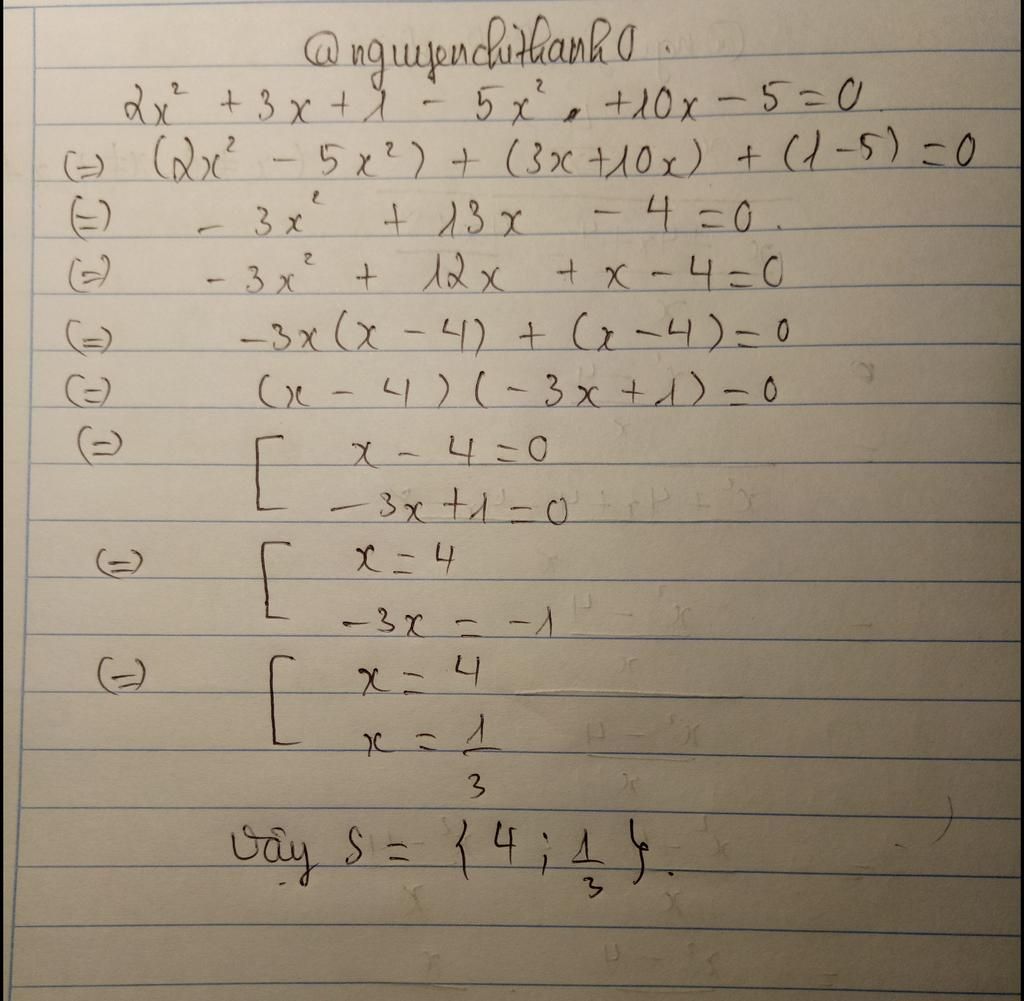 @nguyenchithanh0.
2x² + 3x + 1 - 5x² . +10x - 5 = 0
(=) (2x² - 5x²) + (3x+10x) + (1-5) = 0
(=) - 3x² + 13x - 4 = 0.
(=) - 3x² + 12x + x - 4 = 0
(=) -3x(x - 4) + (x - 4) = 0
(=) (x - 4)(-3x + 1) = 0
(=) [ x - 4 = 0
- 3x + 1 = 0
(=) [ x = 4
-3x = -1
(=) [ x = 4
x = 1/3
Vậy S = { 4 ; 1/3 }.